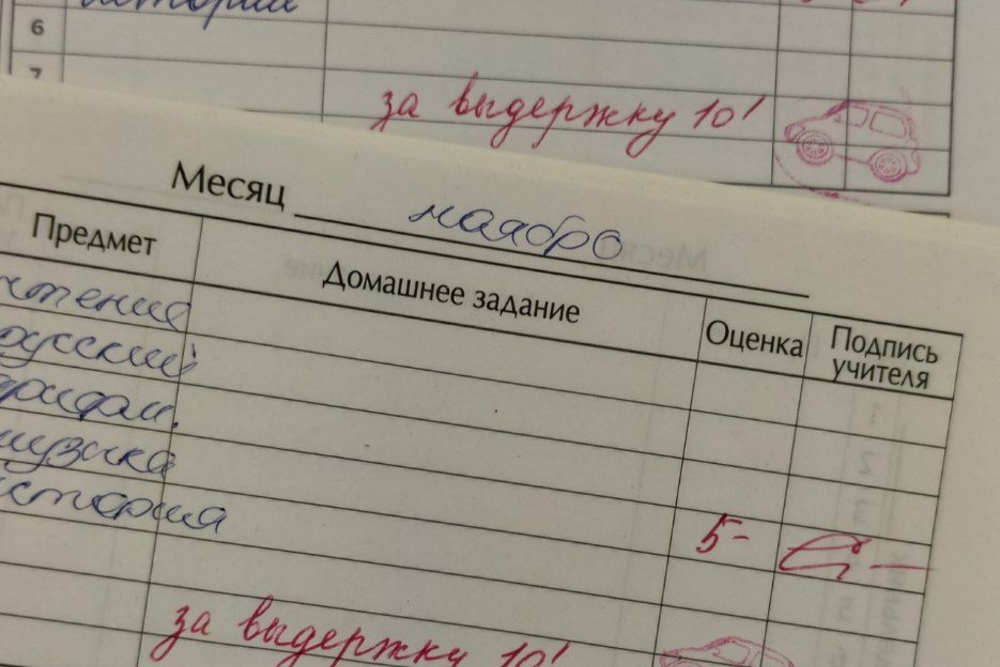 6
7
за выдержку 10!
Месяц ноябрь
Предмет Домашнее задание Оценка Подпись учителя
чтение
русский
арифм.
музыка
история 5-
за выдержку 10!